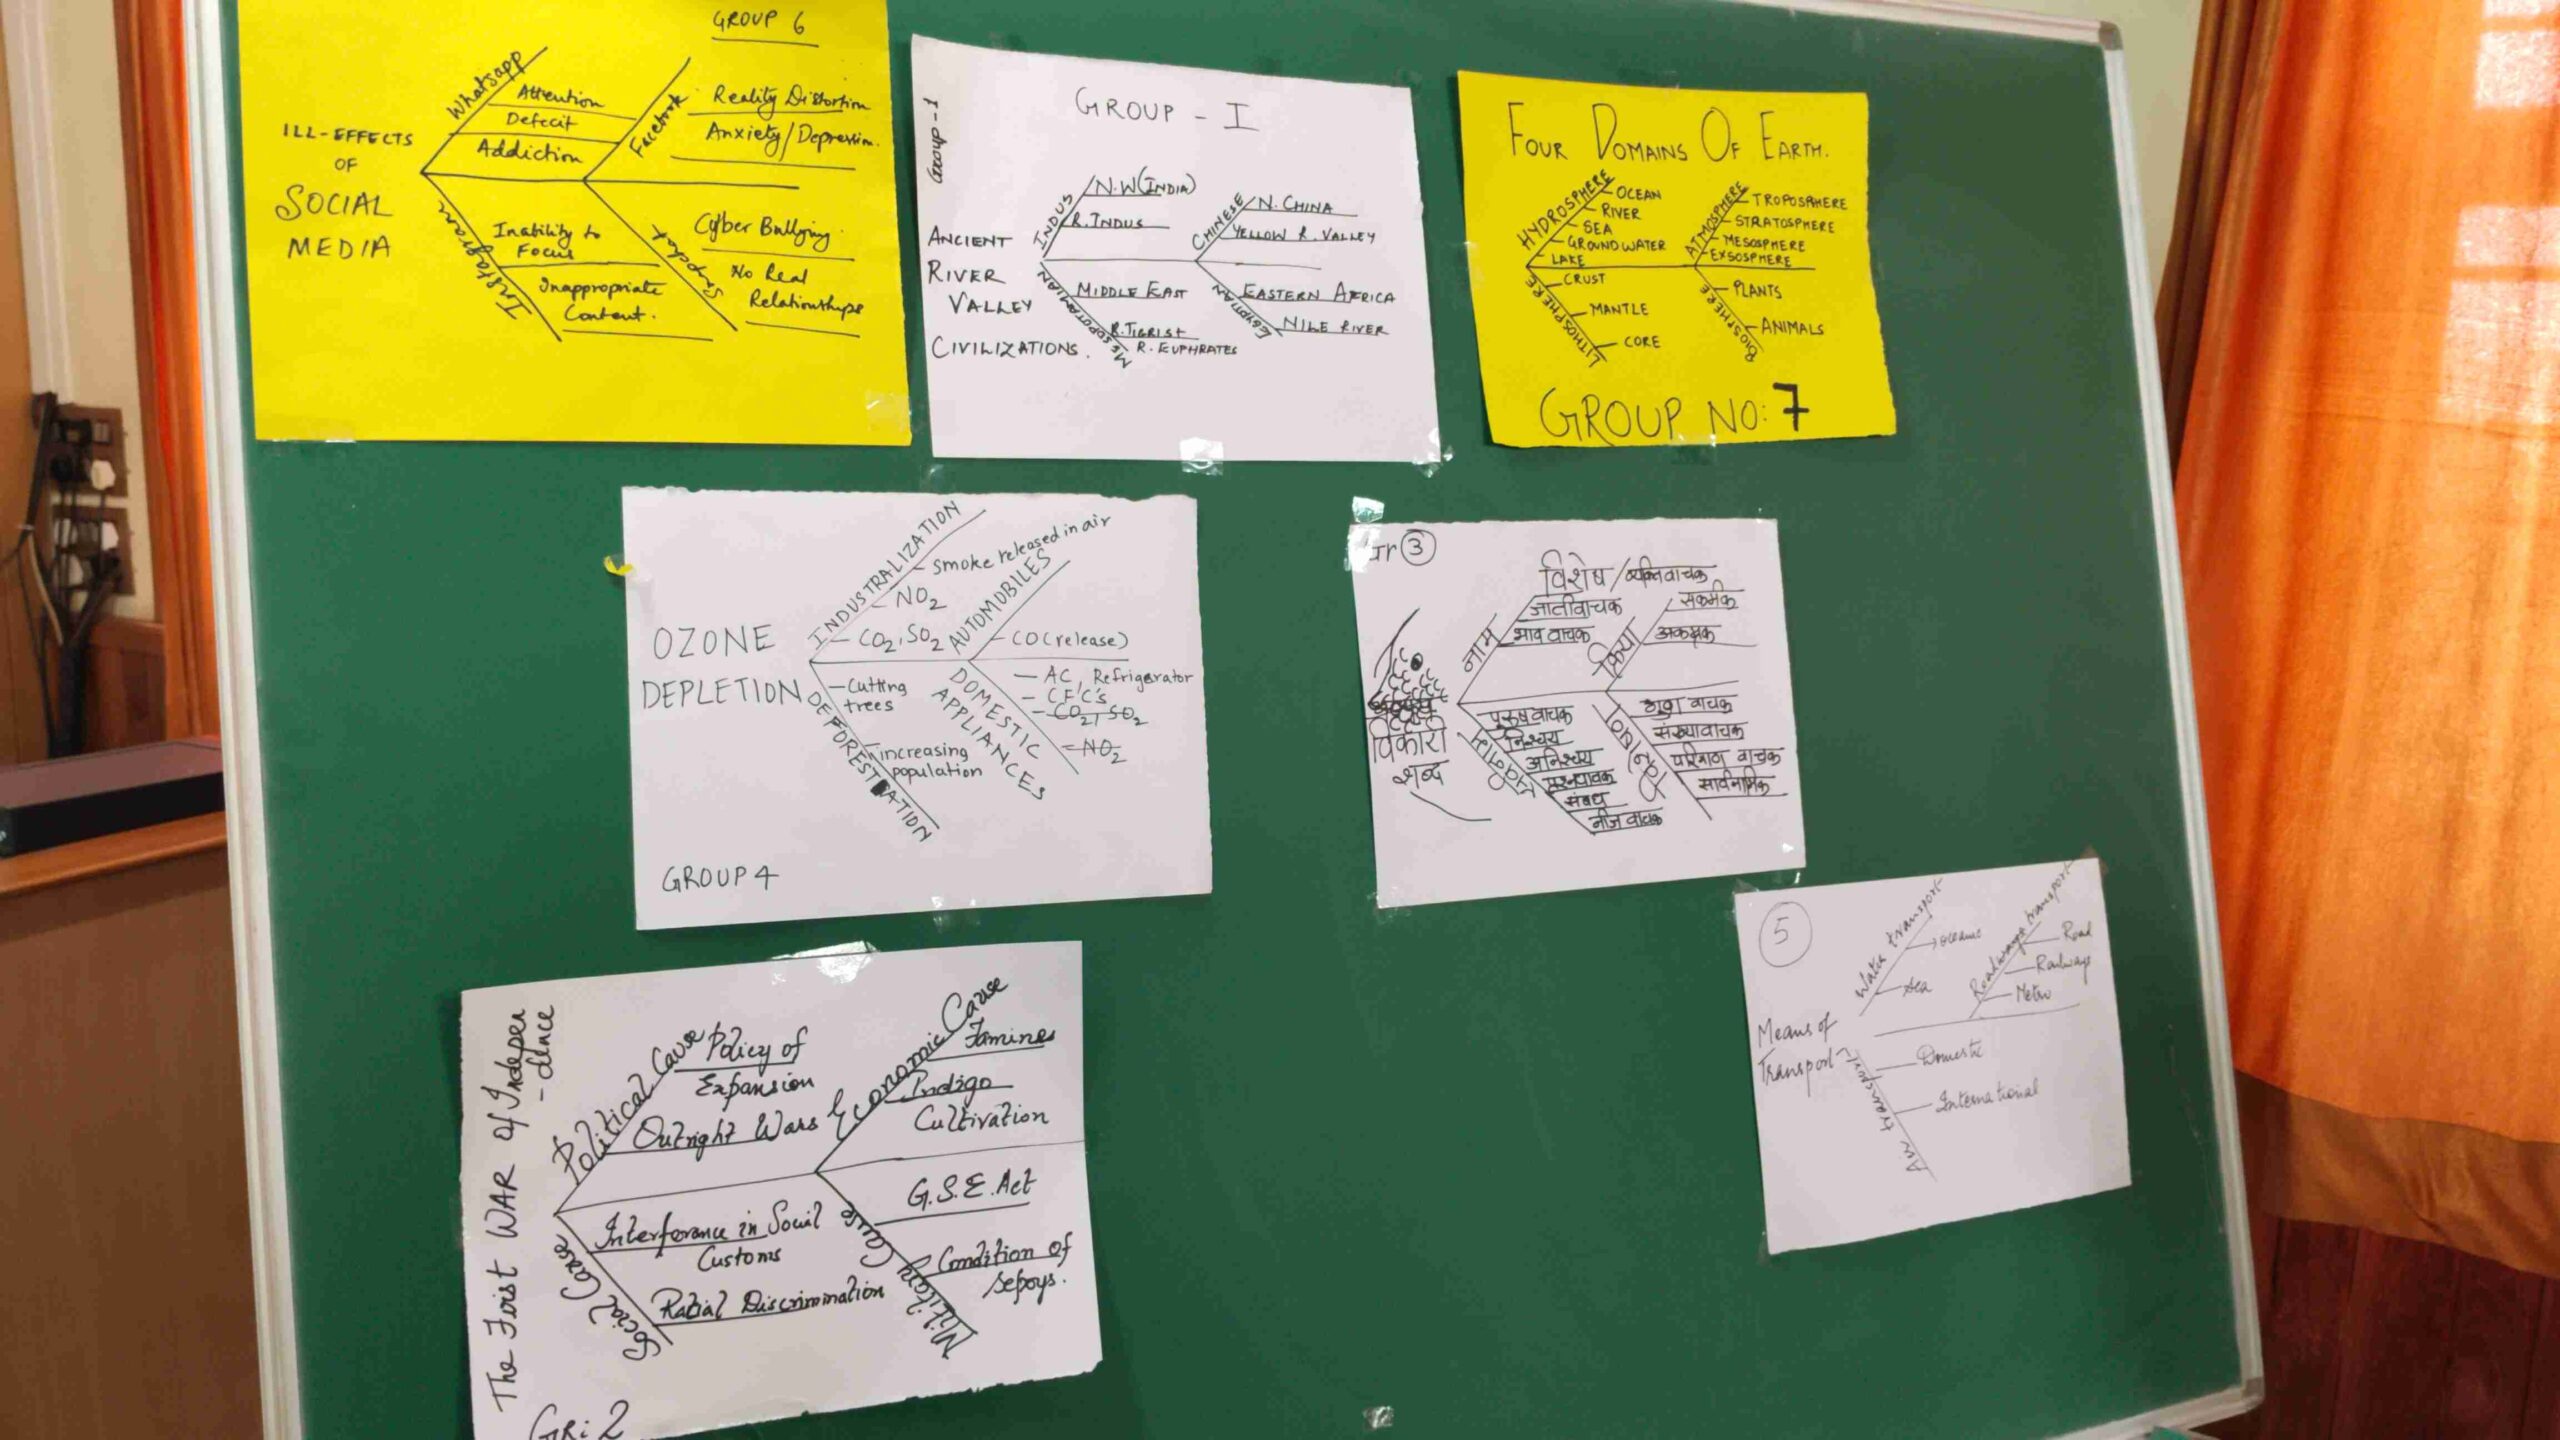 GROUP 6
ILL-EFFECTS
OF
SOCIAL
MEDIA
Whatsapp
Attention
Defecit
Addiction
Facebook
Reality Distortion
Anxiety/Depression.
Instagram
Inability to
Focus
Inappropriate
Content.
Snapchat
Cyber Bullying.
No Real
Relationships
Group-1
GROUP - I
ANCIENT
RIVER
VALLEY
CIVILIZATIONS.
INDUS
N.W(INDIA)
R.INDUS
CHINESE
N. CHINA
YELLOW R. VALLEY
MESOPOTAMIAN
MIDDLE EAST
R.TIGRIST
R. EUPHRATES
EGYPTIAN
EASTERN AFRICA
NILE RIVER
FOUR DOMAINS OF EARTH.
HYDROSPHERE
OCEAN
RIVER
SEA
GROUNDWATER
LAKE
ATMOSPHERE
TROPOSPHERE
STRATOSPHERE
MESOSPHERE
EXSOSPHERE
LITHOSPHERE
CRUST
MANTLE
CORE
BIOSPHERE
PLANTS
ANIMALS
GROUP NO: 7
OZONE
DEPLETION
INDUSTRALIZATION
smoke released in air
NO2
CO2, SO2
AUTOMOBILES
CO(release)
DEFORESTATION
Cutting
trees
increasing
population
DOMESTIC
APPLIANCES
AC, Refrigerator
CFC's
CO2, SO2
NO2
GROUP 4
Gr 3
विकारी
शब्द
नाम
विशेष/व्यक्तिवाचक
जातीवाचक
भाव वाचक
क्रिया
सकर्मक
सर्वनाम
पुरुषवाचक
निश्चय
अनिश्चय
प्रश्नवाचक
संबंध
नीज वाचक
विशेषण
गुण वाचक
संख्यावाचक
परिमाण वाचक
सार्वनामिक
5
Means of
Transport
Water transport
oceanic
sea
Roadways transport
Road
Railways
Metro
Air transport
Domestic
International
The First WAR of Indepen
-dence
Political Cause
Policy of
Expansion
Outright Wars
Economic Cause
Famines
Indigo
Cultivation
Social Cause
Interferance in Social
Customs
Ratial Discrimination
Military Cause
G.S.E. Act
Condition of
Sepoys.
GRi 2